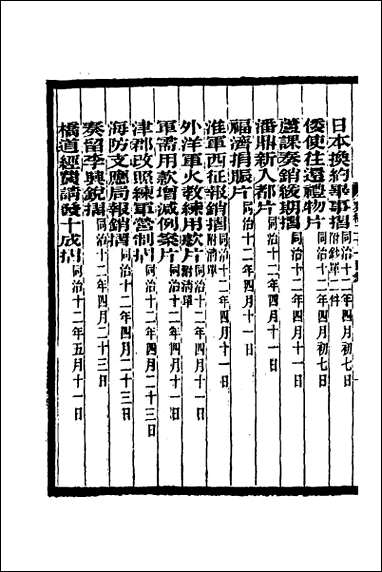 日本換約事竣摺 同治十二年四月初七日 附鈔單二件
倭使往還禮物片 同治十二年四月初七日
蘆課奏銷緩期摺 同治十二年四月十一日
潘鼎新入都片 同治十二年四月十一日
福濟捐賑片 同治十二年四月十一日
淮軍西征報銷摺 同治十二年四月十一日 附清單
外洋軍火教練用款片 同治十二年四月十一日 附清單
軍需用款增減例案片 同治十二年四月十一日
津郡改照練軍營制片 同治十二年四月二十三日
海防支應局報銷摺 同治十二年四月二十三日
奏留李興銳摺 同治十二年四月二十三日
橋道經費請發十成摺 同治十二年五月十一日